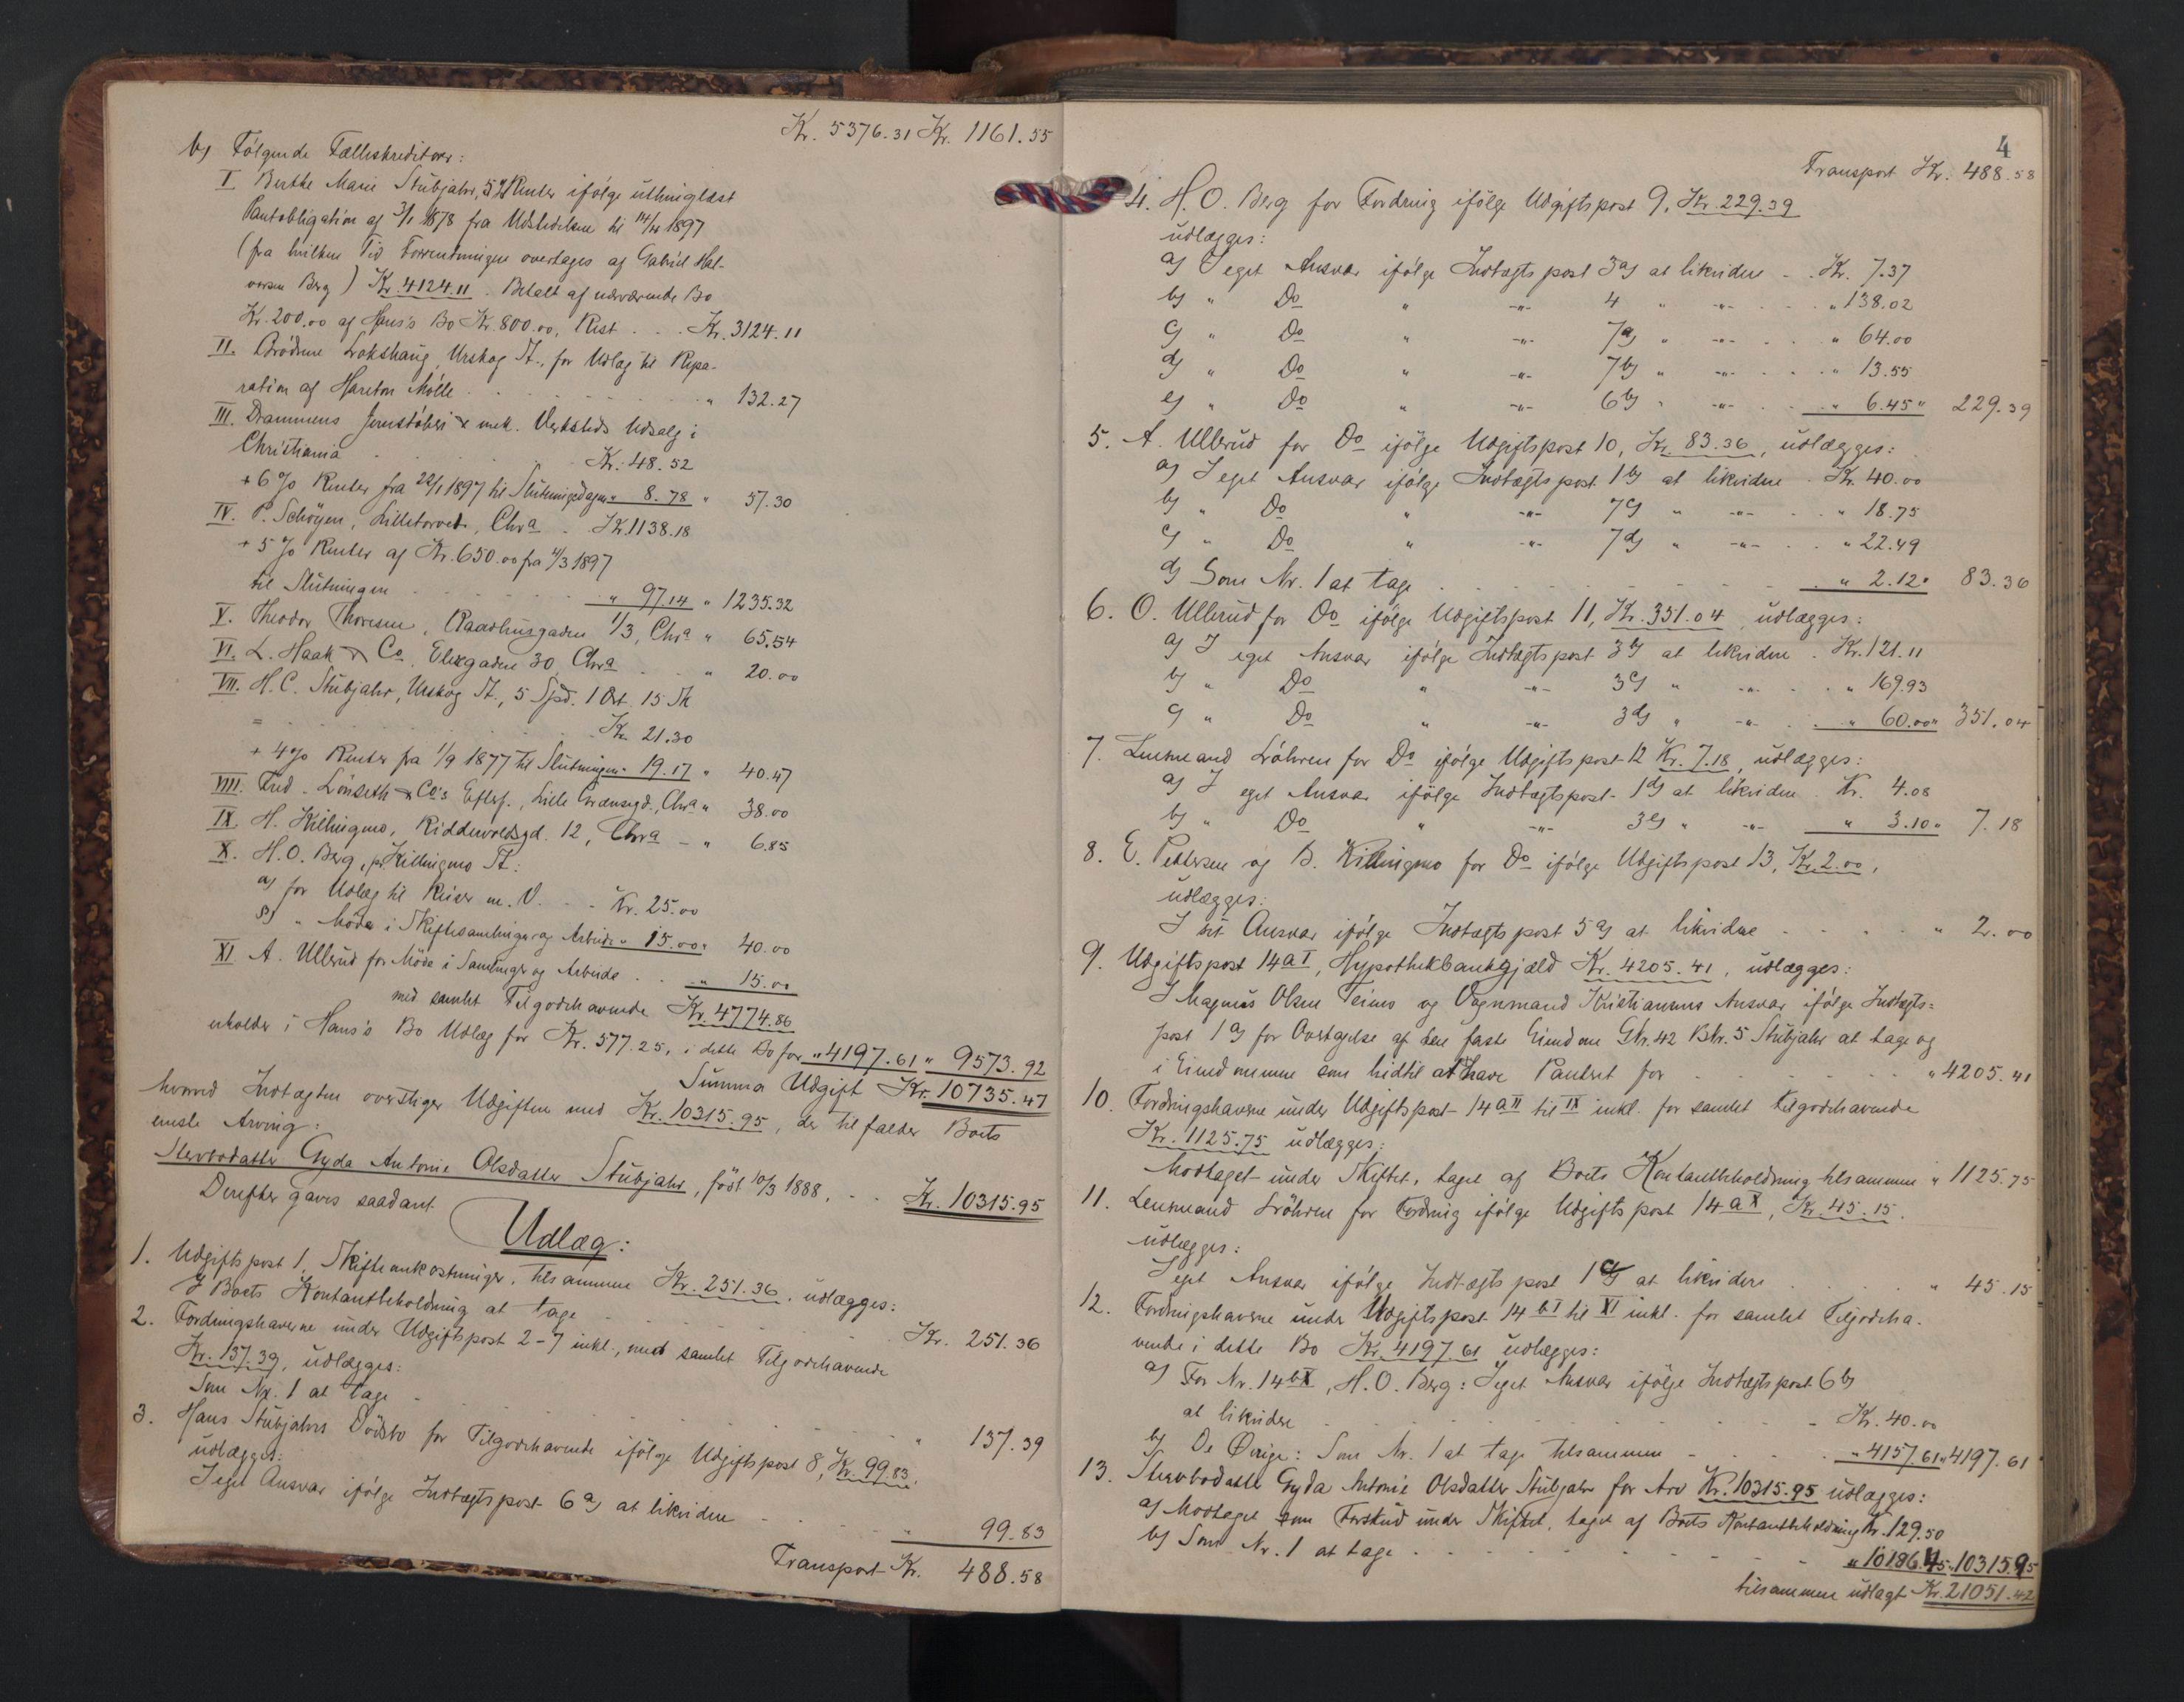 Kr. 5376.31 Kr. 1161.55
b) Følgende Fælleskreditorer:
I Berthe Marie Stubjahr, 5 % Renter ifølge uthinglæst
Pantobligation af 3/1 1878 fra Udstedelsen til 14/4 1897
(fra hvilken Tid Forrentningen overtages af Gabriel Hal-
vorsen Berg) Kr. 4124.11. Betalt af nærværende Bo
Kr. 200.00 af Hans's Bo Kr. 800.00, Rest . . . Kr. 3124.11
II. Brødrene Lokshaug, Urskog St., for Udlæg til Repa-
ration af Hareton Mølle . . . " 132.27
III. Drammens Jernstøberi & mek. Verksteds Udsalg i
Christiania . . . Kr. 48.52
+ 6 % Renter fra 22/1 1897 til Slutningsdagen " 8.78 " 57.30
IV. P. Schøyen, Lilletorvet, Chra . Kr. 1138.18
+ 5 % Renter af Kr. 650.00 fra 4/3 1897
til Slutningen . . . " 97.14 " 1235.32
V. Theodor Thoresen, Raadhusgaden 1/3, Chra " 65.54
VI. L. Haak & Co, Elvegaden 30, Chra . . " 20.00
VII. H.C. Stubjahr, Urskog St., 5 Spd. 1 Ort 15 Sk
= . . . Kr. 21.30
+ 4 % Renter fra 1/9 1877 til Slutningen " 19.17 " 40.47
VIII. Fred. Lönseth & Co's Efterf., Lille Grænsegd., Chra " 38.00
IX. H. Killingmo, Riddervoldsgd. 12, Chra - " 6.85
X. H.O. Berg, pr Killingmo St.:
a) for Udlæg til Reiser m.V. . . Kr. 25.00
b) " Møde i Skiftesamlinger og Arbeide " 15.00 " 40.00
XI A. Ullerud for Møde i Samlinger og Arbeide . . " 15.00
med samlet Tilgodehavende Kr. 4774.86
erholder i Hans's Bo Udlæg for Kr. 577.25, i dette Bo for " 4197.61 " 9573.92
Summa Udgift Kr. 10735.47
hvorved Indtægten overstiger Udgiften med Kr. 10315.95, der tilfalder Boets
eneste Arving:
Stervbodatter Gyda Antonie Olsdatter Stubjahr, født 10/3 1888, . . Kr. 10315.95
Derefter gjøres saadant
Udlæg:
1. Udgiftspost 1, Skifteomkostninger, tilsammen Kr. 251.36, udlægges:
I Boets Kontantbeholdning at tage . . . Kr. 251.36
2. Fordringshaverne under Udgiftspost 2-7 inkl., med samlet Tilgodehavende
Kr. 137.39, udlægges:
Som Nr. 1 at tage . . . " 137.39
3. Hans Stubjahrs Dødsbo for Tilgodehavende ifølge Udgiftspost 8, Kr. 99.83,
udlægges:
I eget Ansvar ifølge Indtægtspost 6 a) at likvidere . . . " 99.83
Transport Kr. 488.58
4
Transport Kr. 488.58
4. H.O. Berg for Fordring ifølge Udgiftspost 9, Kr. 229.39
udlægges:
a) I eget Ansvar ifølge Indtægtspost 3 a) at likvidere . . Kr. 7.37
b) " Do " -"- 4 " -"- . . . " 138.02
c) " Do " -"- 7 a) " -"- . . . " 64.00
d) " Do " -"- 7 b) " -"- . . . " 13.55
e) " Do " -"- 6 b) " -"- . . . " 6.45 " 229.39
5. A. Ullerud for Do ifølge Udgiftspost 10, Kr. 83.36, udlægges:
a) I eget Ansvar ifølge Indtægtspost 1 b) at likvidere . Kr. 40.00
b) " Do " -"- 7 c) " -"- . . " 18.75
c) " Do " -"- 7 d) " -"- . . " 22.49
d) Som Nr. 1 at tage . . . " 2.12 " 83.36
6. O. Ullerud for Do ifølge Udgiftspost 11, Kr. 351.04, udlægges:
a) I eget Ansvar ifølge Indtægtspost 3 b) at likvidere . Kr. 121.11
b) " Do " -"- 3 c) " -"- . . " 169.93
c) " Do " -"- 3 d) " -"- . . " 60.00 " 351.04
7. Lensmand Løhren for Do ifølge Udgiftspost 12 Kr. 7.18, udlægges:
a) I eget Ansvar ifølge Indtægtspost 1 d) at likvidere Kr. 4.08
b) " Do " -"- 3 e) " -"- " 3.10 " 7.18
8. E. Pettersen og B. Killingmo for Do ifølge Udgiftspost 13, Kr. 2.00,
udlægges:
I sit Ansvar ifølge Indtægtspost 5 a) at likvidere . . . " 2.00
9. Udgiftspost 14 a I, Hypothekbankgjæld Kr. 4205.41, udlægges:
I Magnus Olsen Teimo og Vognmand Kristiansens Ansvar ifølge Indtægts=
post 1 a) for Overtagelse af den faste Eiendom Gbr. 42 Bbr. 5 Stubjahr at tage og
i Eiendommen som hidtil at have Panteret for . . . " 4205.41
10. Fordringshaverne under Udgiftspost 14 a II til IX inkl. for samlet Tilgodehavende
Kr. 1125.75 udlægges:
Modtaget under Skiftet, taget af Boets Kontantbeholdning tilsammen " 1125.75
11. Lensmand Løhren for Fordring ifølge Udgiftspost 14 a X, Kr. 45.15.
udlægges:
I eget Ansvar ifølge Indtægtspost 1 c) at likvidere . . . " 45.15
12. Fordringshaverne under Udgiftspost 14 b I til XI inkl. for samlet Tilgodeha-
vende i dette Bo Kr. 4197.61 udlægges:
a) For Nr. 14 b X, H.O. Berg: I eget Ansvar ifølge Indtægtspost 6 b)
at likvidere . . . Kr. 40.00
b) De Øvrige: Som Nr. 1 at tage tilsammen . . . " 4157.61 " 4197.61
13. Stervbodatter Gyda Antonie Olsdatter Stubjahr for Arv Kr. 10315.95 udlægges:
a) Modtaget som Forskud under Skiftet, taget af Boets Kontantbeholdning Kr. 129.50
b) Som Nr. 1 at tage . . . " 10186.45 " 10315.95
tilsammen udlagt Kr. 21051.42